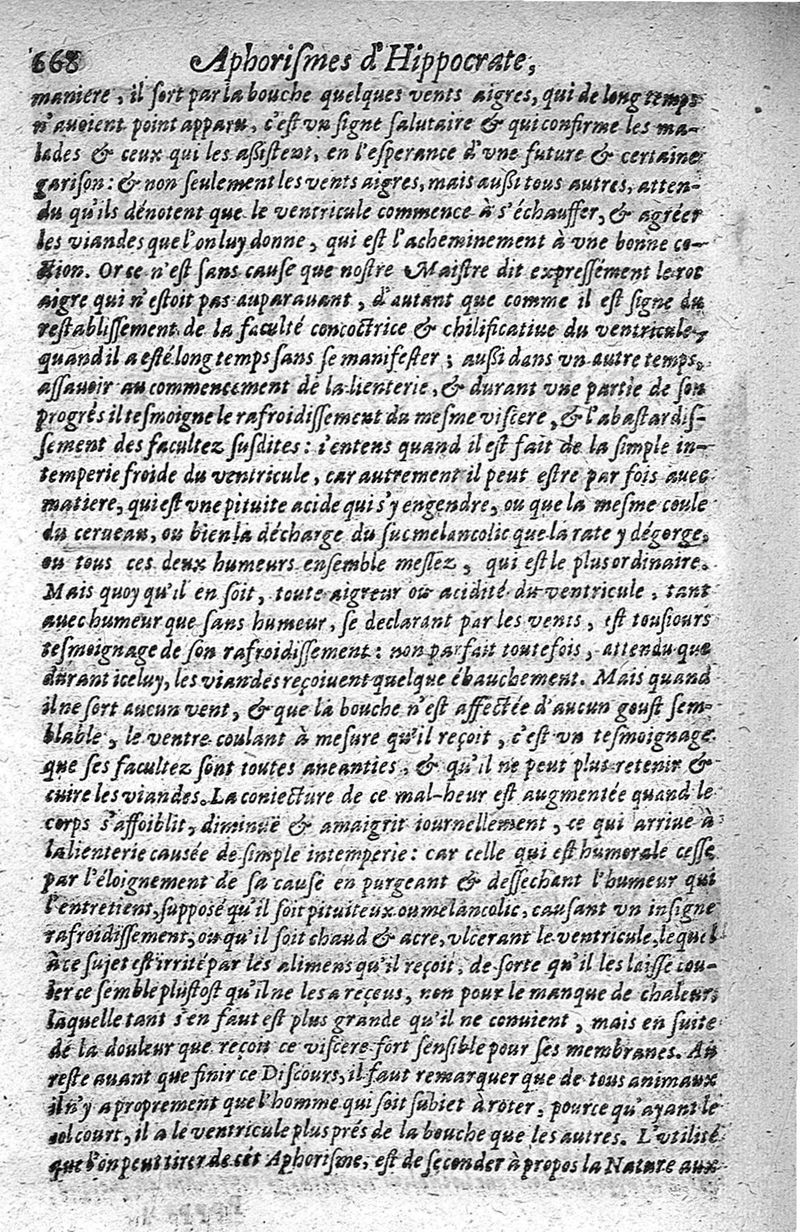 668 Aphoriſmes d'Hippocrate,
maniere, il ſort par la bouche quelques vents aigres, qui de long temps
n'auoient point apparu, c'eſt vn ſigne ſalutaire & qui confirme les ma-
lades & ceux qui les aßiſtent, en l'eſperance d'vne future & certaine
gariſon: & non ſeulement les vents aigres, mais außi tous autres, atten-
du qu'ils dénotent que le ventricule commence à s'échauffer, & agréer
les viandes que l'on luy donne, qui eſt l'acheminement à vne bonne co-
ction. Or ce n'eſt ſans cauſe que noſtre Maiſtre dit expreſſément le rot
aigre qui n'eſtoit pas auparauant, d'autant que comme il eſt ſigne du
reſtabliſſement de la faculté concoctrice & chilificatiue du ventricule,
quand il a eſté long temps ſans ſe manifeſter; außi dans vn autre temps,
aſſauoir au commencement de la lienterie, & durant vne partie de ſon
progrés il teſmoigne le rafroidiſſement du meſme viſcere, & l'abaſtardiſ-
ſement des facultez ſuſdites: i'entens quand il eſt fait de la ſimple in-
temperie froide du ventricule, car autrement il peut eſtre par fois auec
matiere, qui eſt vne pituite acide qui s'y engendre, ou que la meſme coule
du cerueau, ou bien la décharge du ſuc melancolic que la rate y dégorge,
ou tous ces deux humeurs enſemble meſlez, qui eſt le plus ordinaire.
Mais quoy qu'il en ſoit, toute aigreur ou acidité du ventricule, tant
auec humeur que ſans humeur, ſe declarant par les vents, eſt touſiours
teſmoignage de ſon rafroidiſſement: non parfait toutefois, attendu que
durant iceluy, les viandes reçoiuent quelque ébauchement. Mais quand
il ne ſort aucun vent, & que la bouche n'eſt affectée d'aucun gouſt ſem-
blable, le ventre coulant à meſure qu'il reçoit, c'eſt vn teſmoignage
que ſes facultez ſont toutes aneanties, & qu'il ne peut plus retenir &
cuire les viandes. La coniecture de ce mal-heur eſt augmentée quand le
corps s'affoiblit, diminuë & amaigrit iournellement, ce qui arriue à
la lienterie cauſée de ſimple intemperie: car celle qui eſt humorale ceſſe
par l'éloignement de ſa cauſe en purgeant & deſſechant l'humeur qui
l'entretient, ſuppoſé qu'il ſoit pituiteux ou melancolic, cauſant vn inſigne
rafroidiſſement, ou qu'il ſoit chaud & acre, vlcerant le ventricule, lequel
à ce ſujet eſt irrité par les alimens qu'il reçoit, de ſorte qu'il les laiſſe cou-
ler ce ſemble pluſtoſt qu'il ne les a receus, non pour le manque de chaleur,
laquelle tant s'en faut eſt plus grande qu'il ne conuient, mais en ſuite
de la douleur que reçoit ce viſcere fort ſenſible pour ſes membranes. Au
reſte auant que finir ce Diſcours, il faut remarquer que de tous animaux
il n'y a proprement que l'homme qui ſoit ſubiet à roter, pource qu'ayant le
col court, il a le ventricule plus prés de la bouche que les autres. L'vtilité
que l'on peut tirer de cét Aphoriſme, eſt de ſeconder à propos la Nature aux